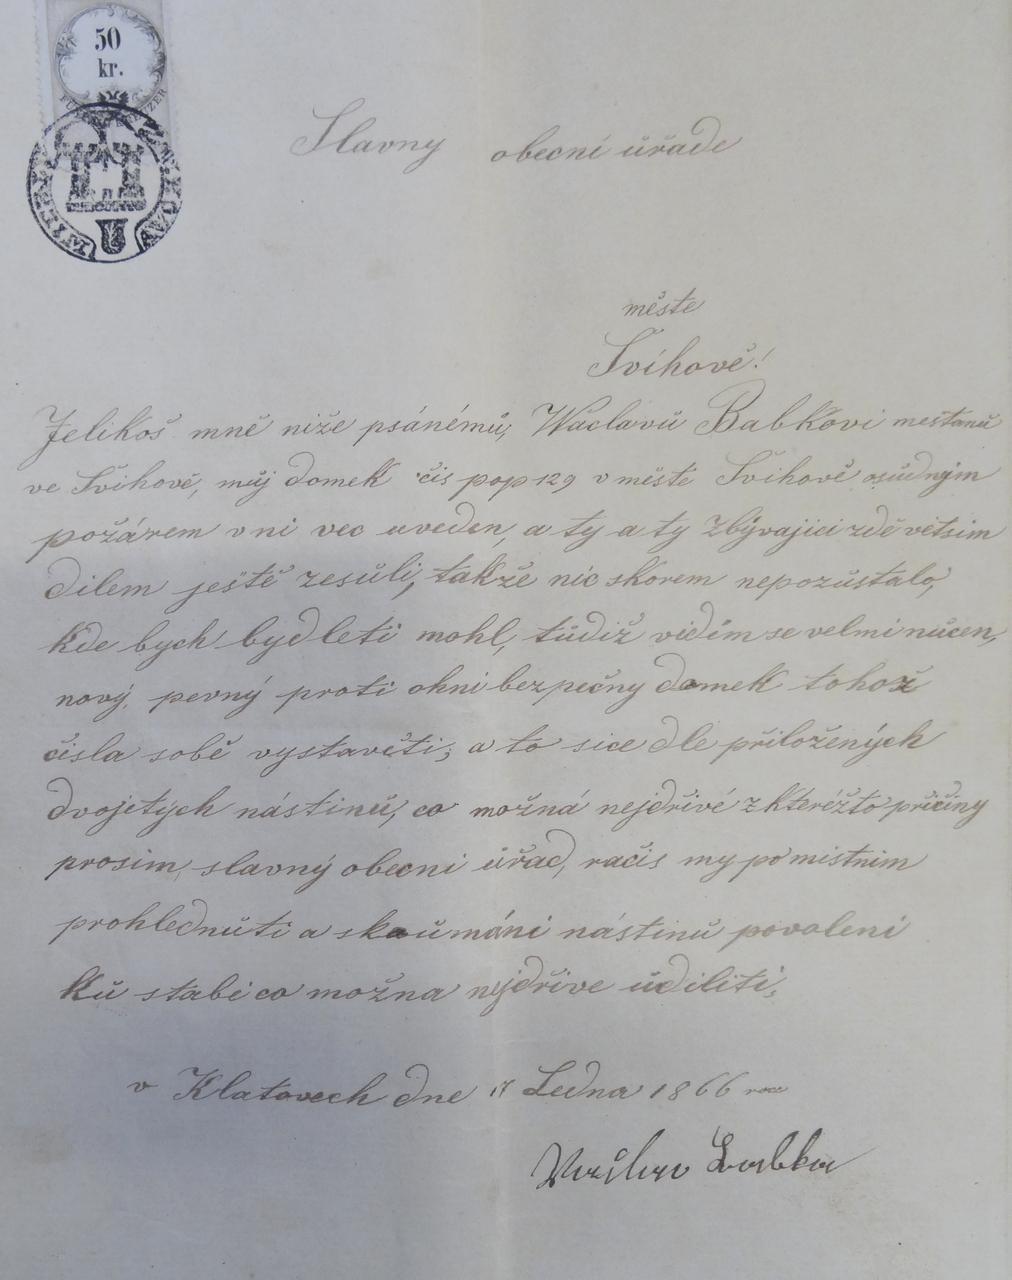 50
kr.
Slavný obecní úřade
měste
Švihově!
Jelikoš mně níže psánémů, Wáclavů Babkovi mestanů
ve Švihově, můj domek čis pop 129 v městě Švihově osůdným
požárem v ni vec uveden, a ty a ty zbývajicí zdě vètsím
dilem ještě zesůli, takže nic skorem nepozůstalo,
kde bych bydleti mohl, tůdiž vidím se velmi nůcen,
nový, pevný proti ohni bezpečny domek tohož
čisla sobě vystavěti; a to sice dle přiložených
dvojetých nástinů, co možná nejdrivé z kteréžto přičiny
prosim, slavný obecni ůřad, račis my po mistnim
prohlednůti a skoůmáni nástinů povoleni
ků stabě co možna nejdřive ůdiliti,
v Klatovech dne 17 Ledna 1866
Václav Babka